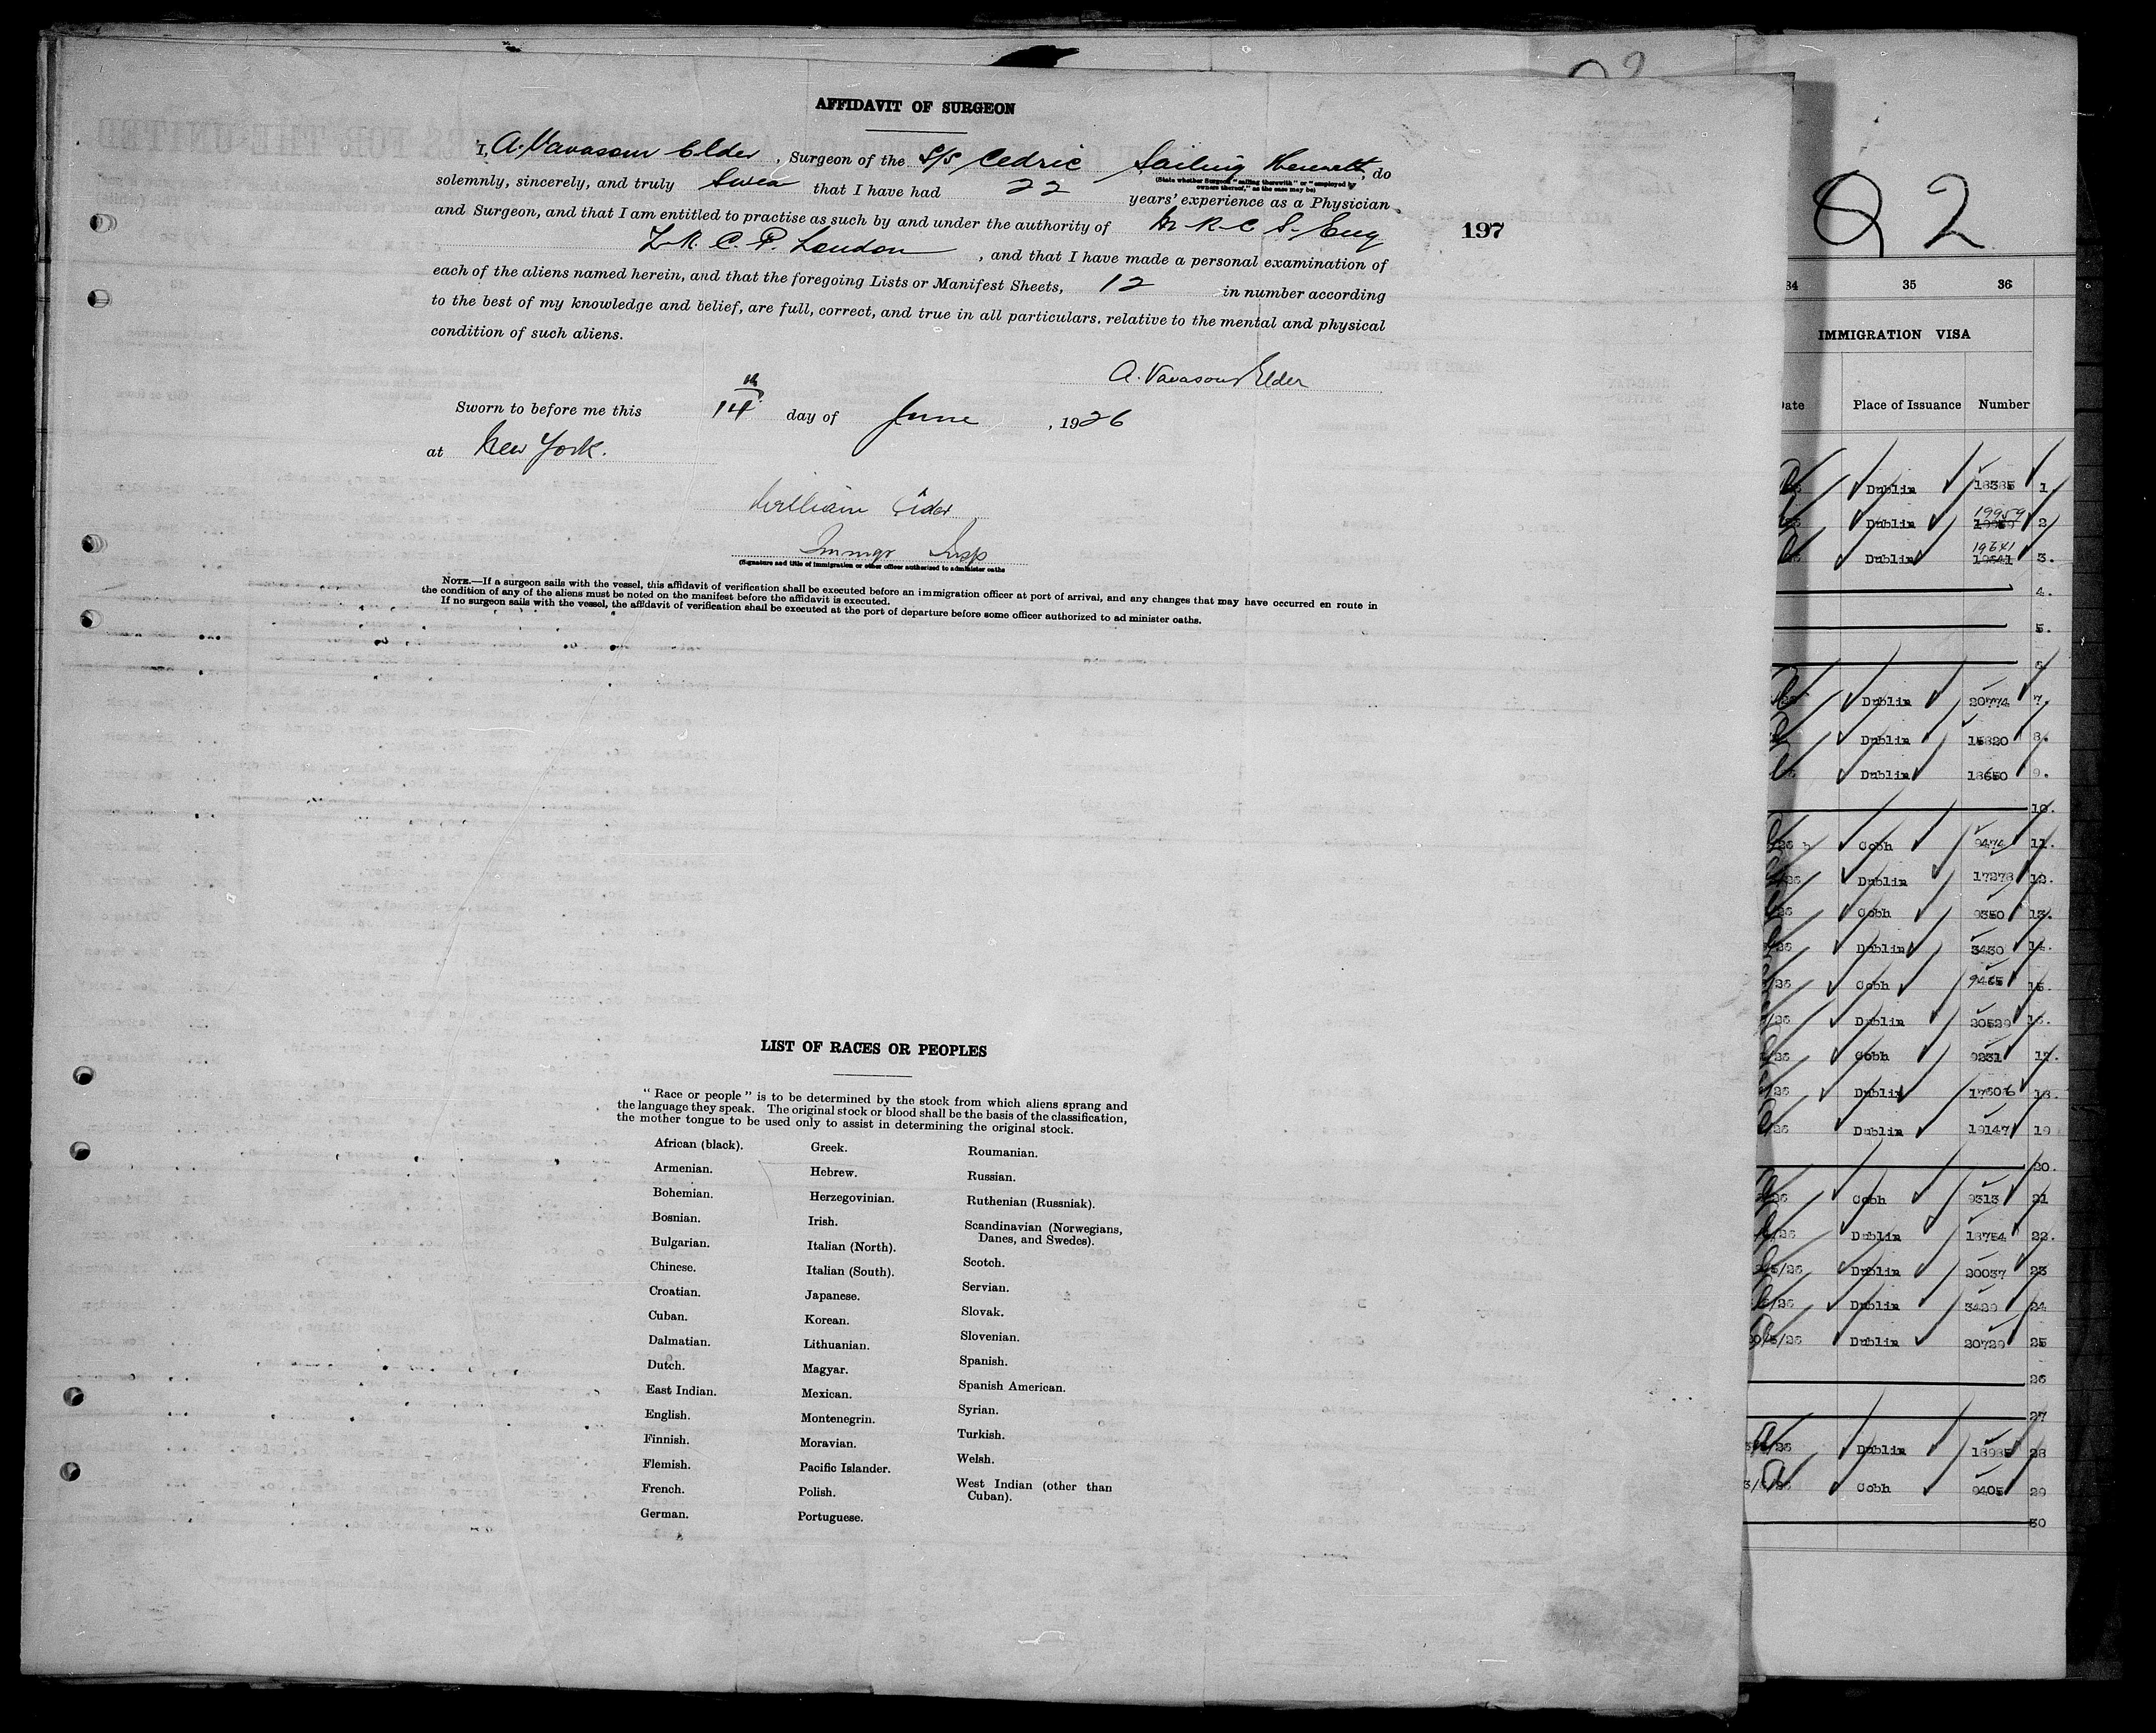 AFFIDAVIT OF SURGEON
I, A. Vavasour Elder, Surgeon of the S/S Cedric Sailing therewith, do
(State whether Surgeon "sailing therewith" or "employed by
owners thereof," as the case may be)
solemnly, sincerely, and truly Swear that I have had 22 years' experience as a Physician
and Surgeon, and that I am entitled to practise as such by and under the authority of M. R. C. S. Eng
197
L. R. C. P. London, and that I have made a personal examination of
each of the aliens named herein, and that the foregoing Lists or Manifest Sheets, 12 in number according
to the best of my knowledge and belief, are full, correct, and true in all particulars. relative to the mental and physical
condition of such aliens.
A. Vavasour Elder
Sworn to before me this 14th day of June, 1926
at New York.
William
Immgr Insp
(Signature and title of immigration or other officer authorized to administer oaths
NOTE.—If a surgeon sails with the vessel, this affidavit of verification shall be executed before an immigration officer at port of arrival, and any changes that may have occurred en route in
the condition of any of the aliens must be noted on the manifest before the affidavit is executed.
If no surgeon sails with the vessel, the affidavit of verification shall be executed at the port of departure before some officer authorized to ad minister oaths.
LIST OF RACES OR PEOPLES
" Race or people " is to be determined by the stock from which aliens sprang and
the language they speak. The original stock or blood shall be the basis of the classification,
the mother tongue to be used only to assist in determining the original stock.
African (black).
Armenian.
Bohemian.
Bosnian.
Bulgarian.
Chinese.
Croatian.
Cuban.
Dalmatian.
Dutch.
East Indian.
English.
Finnish.
Flemish.
French.
German.
Greek.
Hebrew.
Herzegovinian.
Irish.
Italian (North).
Italian (South).
Japanese.
Korean.
Lithuanian.
Magyar.
Mexican.
Montenegrin.
Moravian.
Pacific Islander.
Polish.
Portuguese.
Roumanian.
Russian.
Ruthenian (Russniak).
Scandinavian (Norwegians,
Danes, and Swedes).
Scotch.
Servian.
Slovak.
Slovenian.
Spanish.
Spanish American.
Syrian.
Turkish.
Welsh.
West Indian (other than
Cuban).
92
34 35 36
IMMIGRATION VISA
Date Place of Issuance Number
Dublin 18385 1
19959
Dublin 19959 2
19641
Dublin 19641 3.
4.
5.
6
Dublin 20774 7.
Dublin 15820 8.
Dublin 18650 9.
10.
Cobh 9474 11.
Dublin 17278 12.
Cobh 9350 13.
Dublin 3430 14.
Cobh 9465 15.
Dublin 20529 16.
Cobh 9231 17.
Dublin 17606 18.
Dublin 19147 19
20.
Cobh 9313 21
Dublin 18754 22.
Dublin 20037 23
Dublin 3429 24
Dublin 20729 25
26
27
Dublin 18985 28
Cobh 9405 29
30